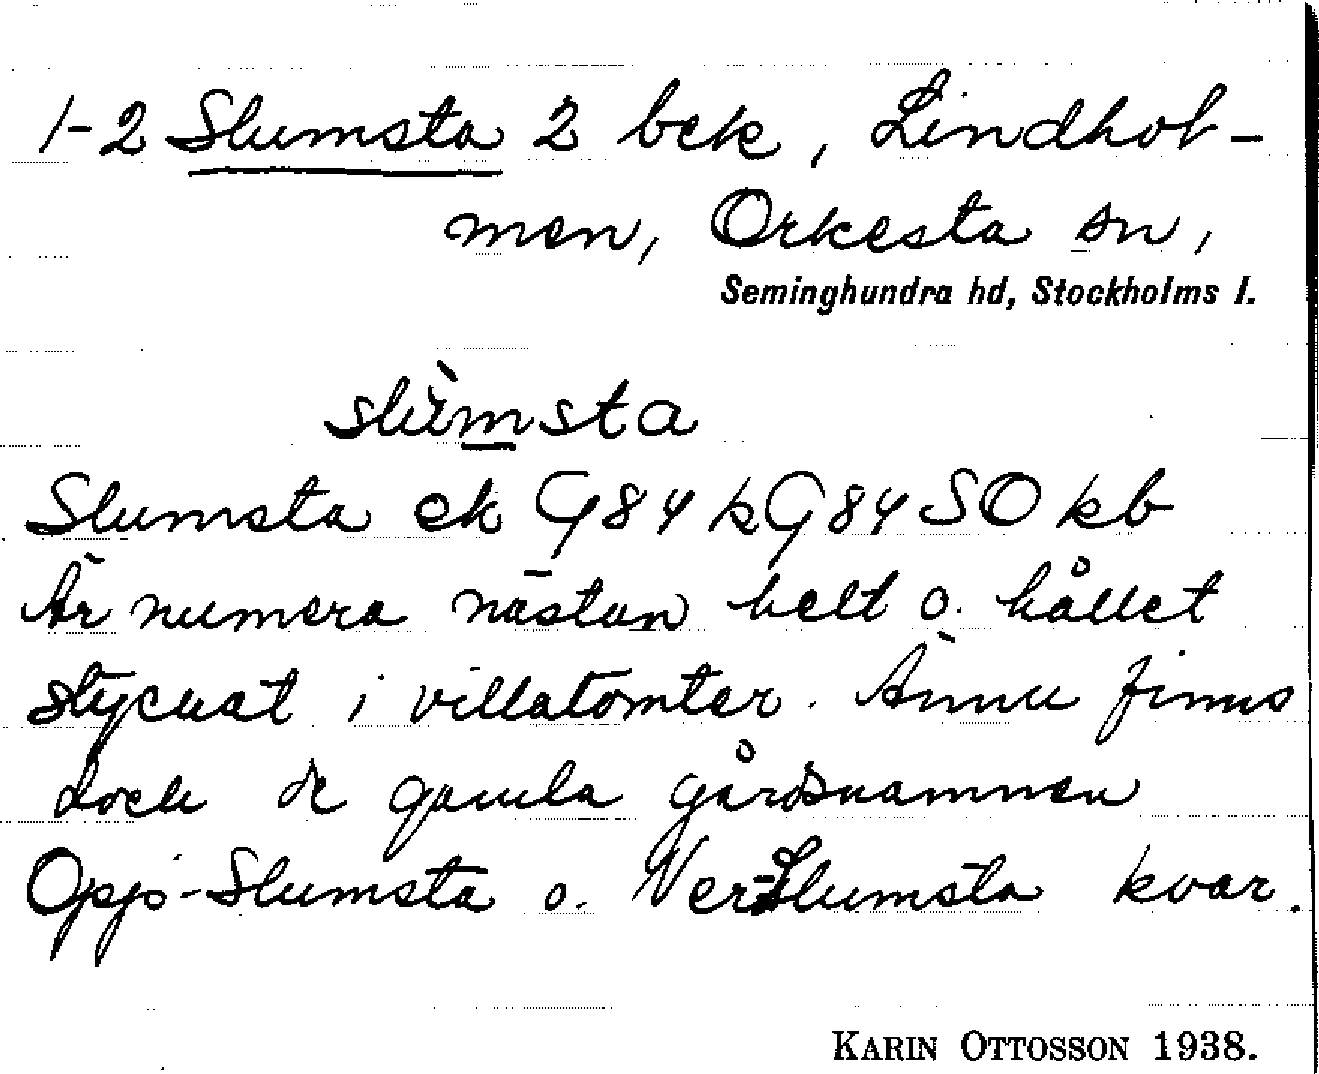 1-2 Slumsta 2 bek, Lindhol-
men, Orkesta sn,
Seminghundra hd, Stockholms l.
slùmsta
Slumsta ek G84 kG84 SO kb
Är numera nästan helt o. hållet
styckat i villatomter. Ännu finns
dock de gamla gårdsnamnen
Opp-Slumsta o. Ner-Slumsta kvar.
KARIN OTTOSSON 1938.